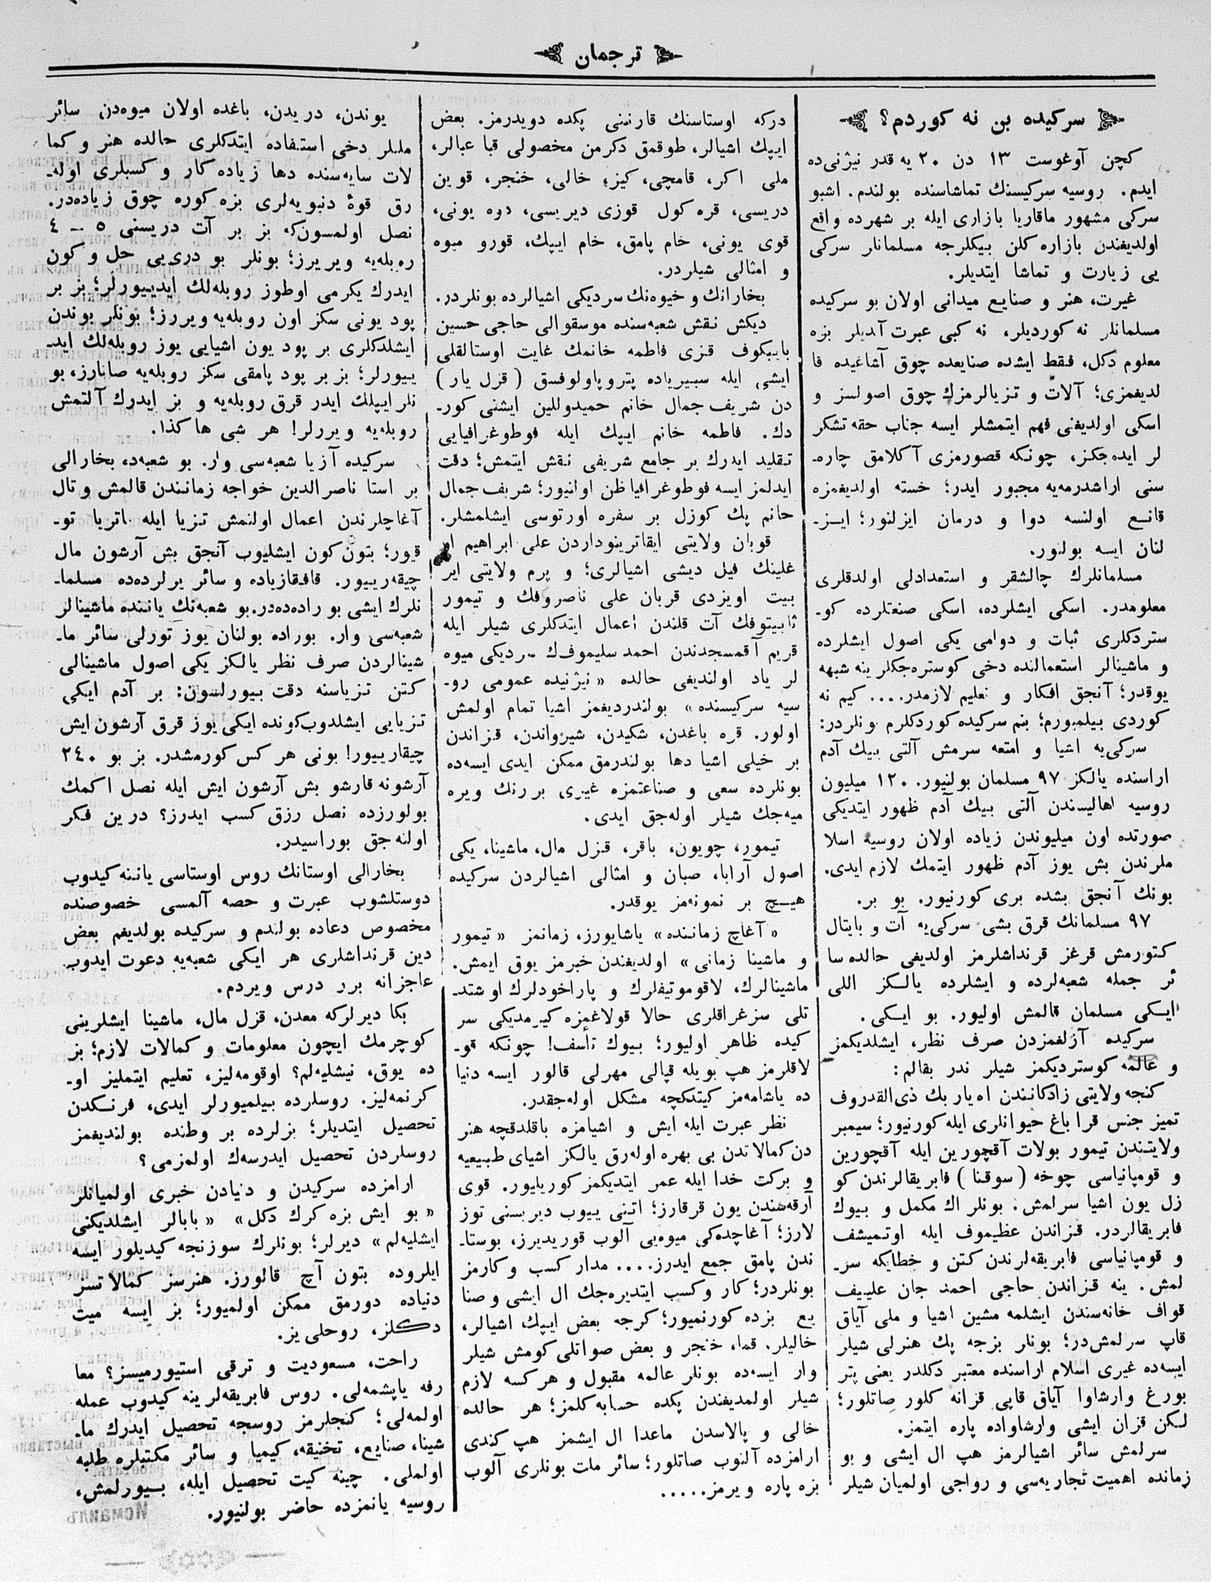 ترجمان
سركیده بن نه كوردم؟
كچن آوغوست ١٣ دن ٢٠ یه قدر نیژنی‌ده
ایدم. روسیه سركیسنك تماشاسنده بولندم. اشبو
سركی مشهور ماقاریا بازاری ایله بر شهرده واقع
اولدیغندن بازاره كلن بیكلرجه مسلمانلر سركی
یی زیارت و تماشا ایتدیلر.
غیرت، هنر و صنایع میدانی اولان بو سركیده
مسلمانلر نه كوردیلر، نه كبی عبرت آلدیلر بزه
معلوم دكل، فقط ایشده صنایعده چوق آشاغیده قا
لدیغمزی؛ آلات و تزیالرمزك چوق اصولسز و
اسكی اولدیغی فهم ایتمشلر ایسه جناب حقه تشكر
لر ایده‌جكز، چونكه قصورمزی آكلامق چاره‌ـ
سنی اراشدرمه‌یه مجبور ایدر؛ خسته اولدیغمزه
قانع اولنسه دوا و درمان ایزلنور؛ ایزـ
لنان ایسه بولنور.
مسلمانلرك چالشقر و استعدادلی اولدقلری
معلومدر. اسكی ایشلرده، اسكی صنعتلرده كوـ
ستردكلری ثبات و دوامی یكی اصول ایشلرده
و ماشینالر استعمالنده دخی كوستره‌جكلرینه شبهه
یوقدر؛ آنجق افكار و تعلیم لازمدر.... كیم نه
كوردی بیلمیورم؛ بنم سركیده كوردكلرم بونلردر:
سركی‌یه اشیا و امتعه سرمش آلتی بیك آدم
اراسنده یالكز ٩٧ مسلمان بولنیور. ١٢٠ میلیون
روسیه اهالیسندن آلتی بیك آدم ظهور ایتدیكی
صورتده اون میلیوندن زیاده اولان روسیه اسلا
ملرندن بش یوز آدم ظهور ایتمك لازم ایدی.
بونك آنجق بشده بری كورنیور. بو بر.
٩٧ مسلمانك قرق بشی سركی‌یه آت و بایتال
كتورمش قرغز قرنداشلرمز اولدیغی حالده سا
ئر جمله شعبه‌لرده و ایشلرده یالكز اللی
ایكی مسلمان قالمش اولیور. بو ایكی.
سركیده آزلغمزدن صرف نظر، ایشلدیكمز
و عالمه كوستردیكمز شیلر ندر بقالم:
كنجه ولایتی زادكانندن اه‌یار بك ذی‌القدروف
تمیز جنس قرا باغ حیوانلری ایله كورنیور؛ سیمبر
ولایتندن تیمور بولات آقچورین ایله آقچورین
و قومپانیاسی چوخه (سوقنا) فابریقالرندن كو
زل یون اشیا سرلمش. بونلر اك مكمل و بیوك
فابریقالردر. قزاندن عظیموف ایله اوتمیشف
و قومپانیاسی فابریقه‌لرندن كتن و خطایكه سرـ
لمش. ینه قزاندن حاجی احمد جان علییف
قواف خانه‌سندن ایشلمه مشین اشیا و ملی آیاق
قاپ سرلمش‌در؛ بونلر بزجه پك هنرلی شیلر
ایسه‌ده غیری اسلام اراسنده معتبر دكلدر یعنی پتر
بورغ وارشاوا آیاق قابی قزانه كلور صاتلور؛
لیكن قزان ایشی وارشاواده پاره ایتمز.
سرلمش سائر اشیالرمز هپ ال ایشی و بو
زمانده اهمیت تجاریه‌سی و رواجی اولمیان شیلر
دركه اوستاسنك قارننی پكده دویدرمز. بعض
ایپك اشیالر، طوقمق دكرمن محصولی قبا عبالر،
ملی اكر، قامچی، كیز؛ خالی، خنجر، قوین
دریسی، قره كول قوزی دیریسی، دوه یونی،
قوی یونی، خام پامق، خام ایپك، قورو میوه
و امثالی شیلردر.
بخارانك و خیوه‌نك سردیكی اشیالرده بونلردر.
دیكش نقش شعبه‌سنده موسقوالی حاجی حسین
باییكوف قزی فاطمه خانمك غایت اوستالقلی
ایشی ایله سبیریاده پتروپاولوفسق (قزل یار)
دن شریف‌جمال خانم حمیدوللین ایشنی كورـ
دك. فاطمه خانم ایپك ایله فوطوغرافیایی
تقلید ایدرك بر جامع شریفی نقش ایتمش؛ دقت
ایدلمز ایسه فوطوغرافیا ظن اولنیور؛ شریف جمال
حانم پك كوزل بر سفره اورتوسی ایشلمشلر.
قوبان ولایتی ایقاترینوداردن علی ابراهیم او
غلینك فیل دیشی اشیالری؛ و پرم ولایتی ایر
بیت اویزدی قربان علی ناصروفك و تیمور
ثابیتوفك آت قلندن اعمال ایتدكلری شیلر ایله
قریم آقمسجددن احمد سلیموف‌ك سردیكی میوه
لر یاد اولندیغی حالده «نیژنیده عمومی روـ
سیه سركیسنده» بولندردیغمز اشیا تمام اولمش
اولور. قره باغدن، شكیدن، شیرواندن، قزاندن
بر خیلی اشیا دها بولندرمق ممكن ایدی ایسه‌ده
بونلرده سعی و صناعتمزه غیری بر رنك ویره
میه‌جك شیلر اوله‌جق ایدی.
تیمور، چویون، باقر، قزل مال، ماشینا، یكی
اصول آرابا، صبان و امثالی اشیالردن سركیده
هیچ بر نمونه‌مز یوقدر.
«آغاچ زماننده» یاشایورز، زمانمز «تیمور
و ماشینا زمانی» اولدیغندن خبرمز یوق ایمش.
ماشینالرك، لاقوموتیفلرك و پاراخودلرك اوشتدـ
تلی سزغراقلری حالا قولاغمزه كیرمدیكی سر
كیده ظاهر اولیور؛ بیوك تأسف! چونكه قوـ
لاقلرمز هپ بویله قپالی مهرلی قالور ایسه دنیا
ده یاشامه‌مز كیتدكچه مشكل اوله‌جقدر.
نظر عبرت ایله ایش و اشیامزه باقلدقچه هنر
دن كمالاتدن بی بهره اوله‌رق یالكز اشیای طبیعیه
و بركت خدا ایله عمر ایتدیكمز كوریلیور. قوی
آرقه‌شندن یون قرقارز؛ اتنی ییوب دیریسنی توز
لارز؛ آغاچده‌كی میوه‌یی آلوب قوریدیرز، بوستاـ
ندن پامق جمع ایدرز.... مدار كسب و كارمز
بونلردر؛ كار و كسب ایتدیره‌جك ال ایشی و صنا
یع بزده كورنمیور؛ كرچه بعض ایپك اشیالر،
خالیلر. قما، خنجر و بعض صواتلی كومش شیلر
وار ایسه‌ده بونلر عالمه مقبول و هركسه لازم
شیلر اولمدیغندن پكده حسابه كلمز؛ هر حالده
خالی و پالاسدن ماعدا ال ایشمز هپ كندی
ارامزده آلنوب صاتلور؛ سائر ملت بونلری آلوب
بزه پاره ویرمز.....
یوندن، دریدن، باغده اولان میوه‌دن سائر
مللر دخی استفاده ایتدكلری حالده هنر و كما
لات سایه‌سنده دها زیاده كار و كسبلری اوله‌ـ
رق قوهٔ دنیویه‌لری بزه كوره چوق زیاده‌در.
نصل اولمسون‌كه، بز بر آت دریسنی ٥ ــ ٤
روبله‌یه ویریرز؛ بونلر بو دری‌یی حل و كون
ایدرك یكرمی اوطوز روبله‌لك ایدییورلر؛ بز بر
پود یونی سكز اون روبله‌یه ویررز؛ بونلر یوندن
ایشلدكلری بر پود یون اشیایی یوز روبله‌لك ایدـ
ییورلر؛ بز بر پود پامقی سكز روبله‌یه صانارز، بو
نلر ایپلك ایدر قرق روبله‌یه و بز ایدرك آلتمش
روبله‌یه ویررلر! هر شی هاكذا.
سركیده آزیا شعبه‌سی وار. بو شعبه‌ده، بخارالی
بر استا ناصرالدین خواجه زمانندن قالمش و تال
آغاچلرندن اعمال اولنمش تزیا ایله باتریا توـ
قیور؛ بتون كون ایشلیوب آنجق بش آرشون مال
چیقه‌رییور. قافقازیاده و سائر یرلرده‌ده مسلماـ
نلرك ایشی بو راده‌ده‌در. بو شعبه‌نك یاننده ماشینالر
شعبه‌سی وار. بوراده بولنان یوز تورلی سائر ماـ
شینالردن صرف نظر یالكز یكی اصول ماشینالی
كتن تزیاسنه دقت بیورلسون: بر آدم ایكی
تزیایی ایشلدوب كونده ایكی یوز قرق آرشون ایش
چیقارییور! بونی هر كس كورمشدر. بز بو ٢٤٠
آرشونه قارشو بش آرشون ایش ایله نصل اكمك
بولورزده نصل رزق كسب ایدرز؟ درین فكر
اولنه‌جق بوراسیدر.
بخارالی اوستانك روس اوستاسی یاننه كیدوب
دوستلشوب عبرت و حصه آلمسی خصوصنده
مخصوص دعاده بولندم و سركیده بولدیغم بعض
دین قرنداشلری هر ایكی شعبه‌یه دعوت ایدوب
عاجزانه برر درس ویردم.
بكا دیرلركه معدن، قزل مال، ماشینا ایشلرینی
كوچرمك ایچون معلومات و كمالات لازم؛ بز
ده یوق، نیشلیه‌لم؟ اوقومه‌لیز، تعلیم ایتملیز اوـ
كرنمه‌لیز. روسلرده بیلمیورلر ایدی، فرنكدن
تحصیل ایتدیلر؛ بزلرده بر وطنده بولندیغمز
روسلردن تحصیل ایدرسه‌ك اولمزمی؟
ارامزده سركیدن و دنیادن خبری اولمیانلر
«بو ایش بزه كرك دكل» «بابالر ایشلدیكنی
ایشلیه‌لم» دیرلر؛ بونلرك سوزنجه كیدیلور ایسه
ایلروده بتون آچ قالورز. هنرسز كمالاتسز
دنیاده دورمق ممكن اولمیور؛ بز ایسه میت
دكلز، روحلی‌یز.
راحت، مسعودیت و ترقی استیورمیسز؟ معا
رفه یاپشمه‌لی. روس فابریقه‌لرینه كیدوب عمله
اولمه‌لی؛ كنجلرمز روسجه تحصیل ایدرك ماـ
شینا، صنایع، تخنیقه، كیمیا و سائر مكتبلره طلبه
اولملی. چینه كیت تحصیل ایله، بیورلمش،
روسیه یانمزده حاضر بولنیور.